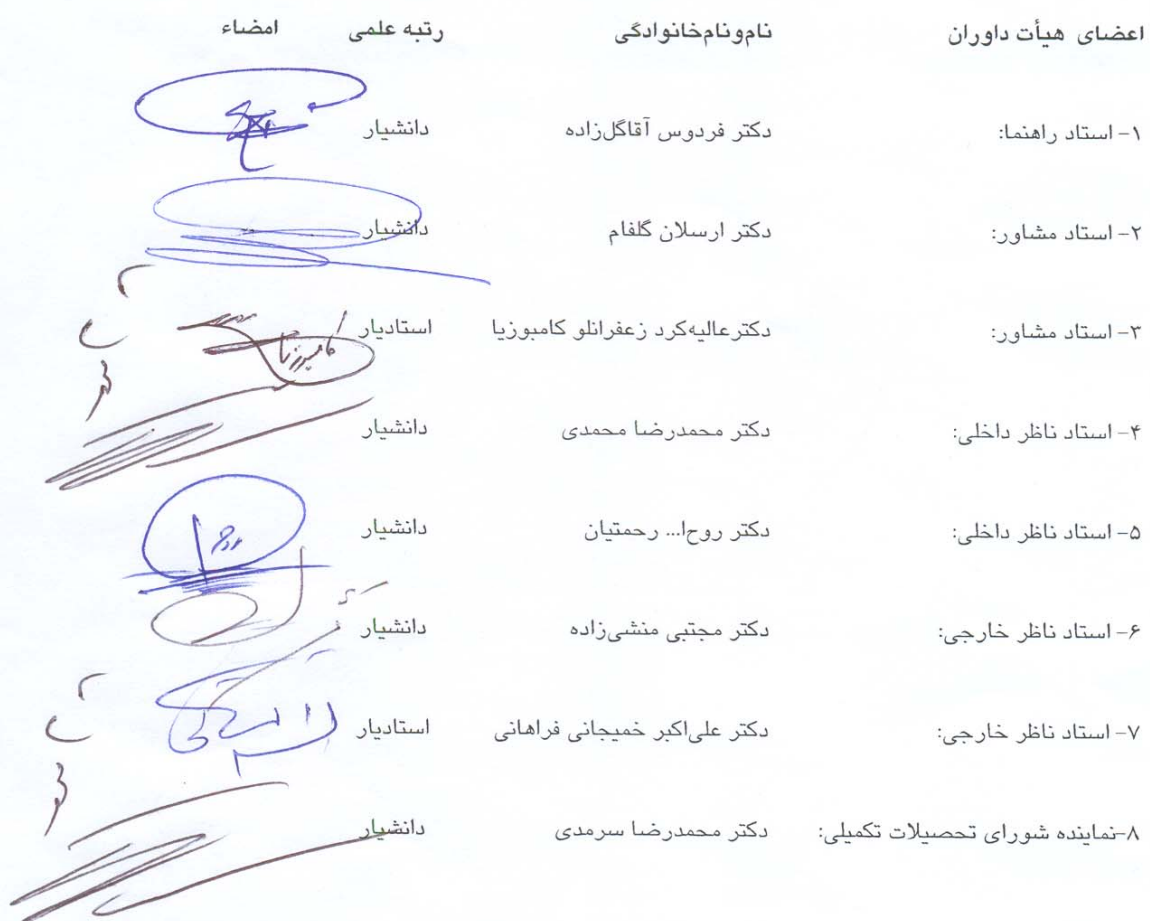 اعضای هیأت داوران نام‌ونام‌خانوادگی رتبه علمی امضاء
۱- استاد راهنما: دکتر فردوس آقاگل‌زاده دانشیار
۲- استاد مشاور: دکتر ارسلان گلفام دانشیار
۳- استاد مشاور: دکترعالیه‌کرد زعفرانلو کامبوزیا استادیار
۴- استاد ناظر داخلی: دکتر محمدرضا محمدی دانشیار
۵- استاد ناظر داخلی: دکتر روح‌ا... رحمتیان دانشیار
۶- استاد ناظر خارجی: دکتر مجتبی منشی‌زاده دانشیار
۷- استاد ناظر خارجی: دکتر علی‌اکبر خمیجانی فراهانی استادیار
۸-نماینده شورای تحصیلات تکمیلی: دکتر محمدرضا سرمدی دانشیار